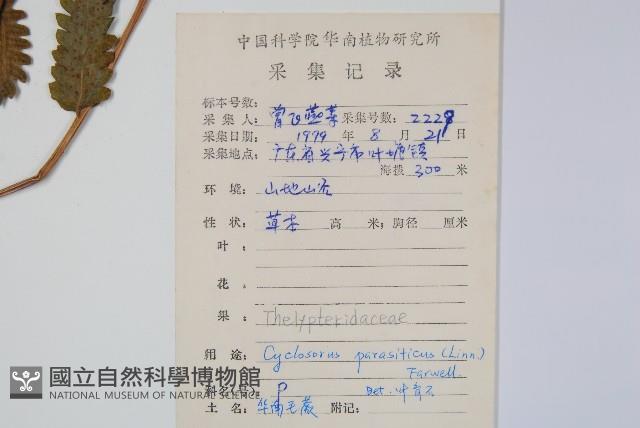 中国科学院华南植物研究所
采集记录
标本号数:
采集人: 曾飞燕等 采集号数: 2229
采集日期: 1999 年 8 月 21 日
采集地点: 广东省兴宁市叶塘镇
海拨 300 米
环境: 山地山谷
性状: 草本 高 米; 胸径 厘米
叶:
花:
果: Thelypteridaceae
用途: Cyclosorus parasiticus (Linn.)
Farwell
科名(号): P Det. 叶育石
土名: 华南毛蕨 附记:
國立自然科學博物館
NATIONAL MUSEUM OF NATURAL SCIENCE